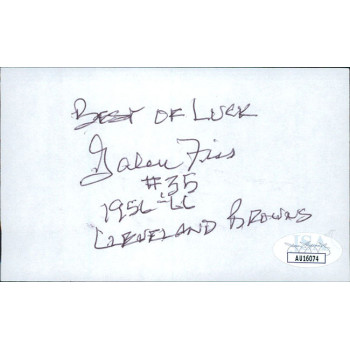 BEST OF LUCK
Galen Fiss
#35
1956-66
CLEVELAND BROWNS
JSA
AU16074